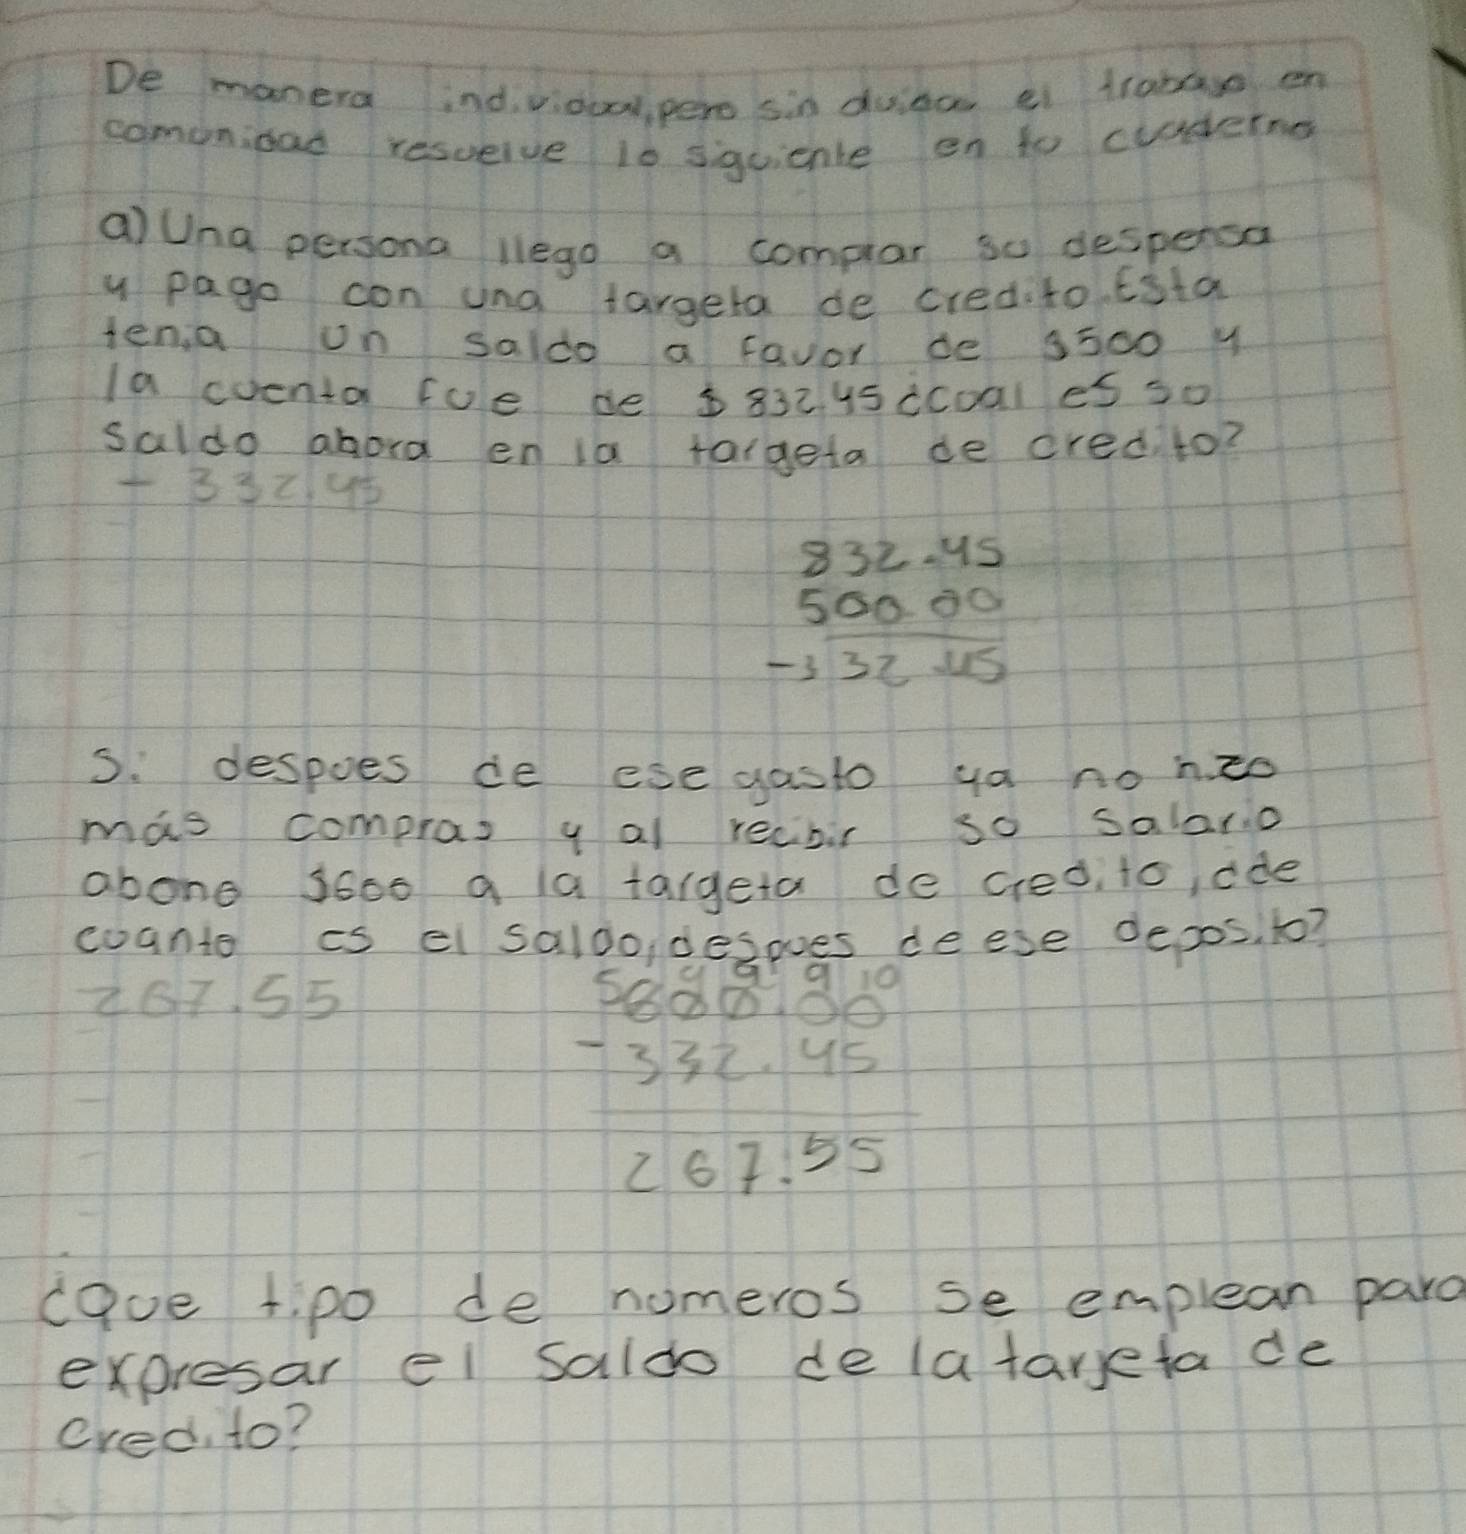 De manera individual, pero sin duidar el trabajo en
comunidad resuelve lo siguiente en tu cuaderno
a) Una persona llego a comprar su despensa
y pago con una targeta de credito. Esta
tenia un saldo a favor de $500 y
la cuenta fue de $832.45 ¿cual es su
saldo ahora en la targeta de credito?
- 332.45
832.45
500.00
-332.45
Si despues de ese gasto ya no hizo
más compras y al recibir su salario
abono $600 a la targeta de credito, ¿de
cuanto es el saldo, despues de ese deposito?
267.55
5 9 9 9 10
600.00
- 332.45
267.55
¿Que tipo de numeros se emplean para
expresar el saldo de la tarjeta de
credito?